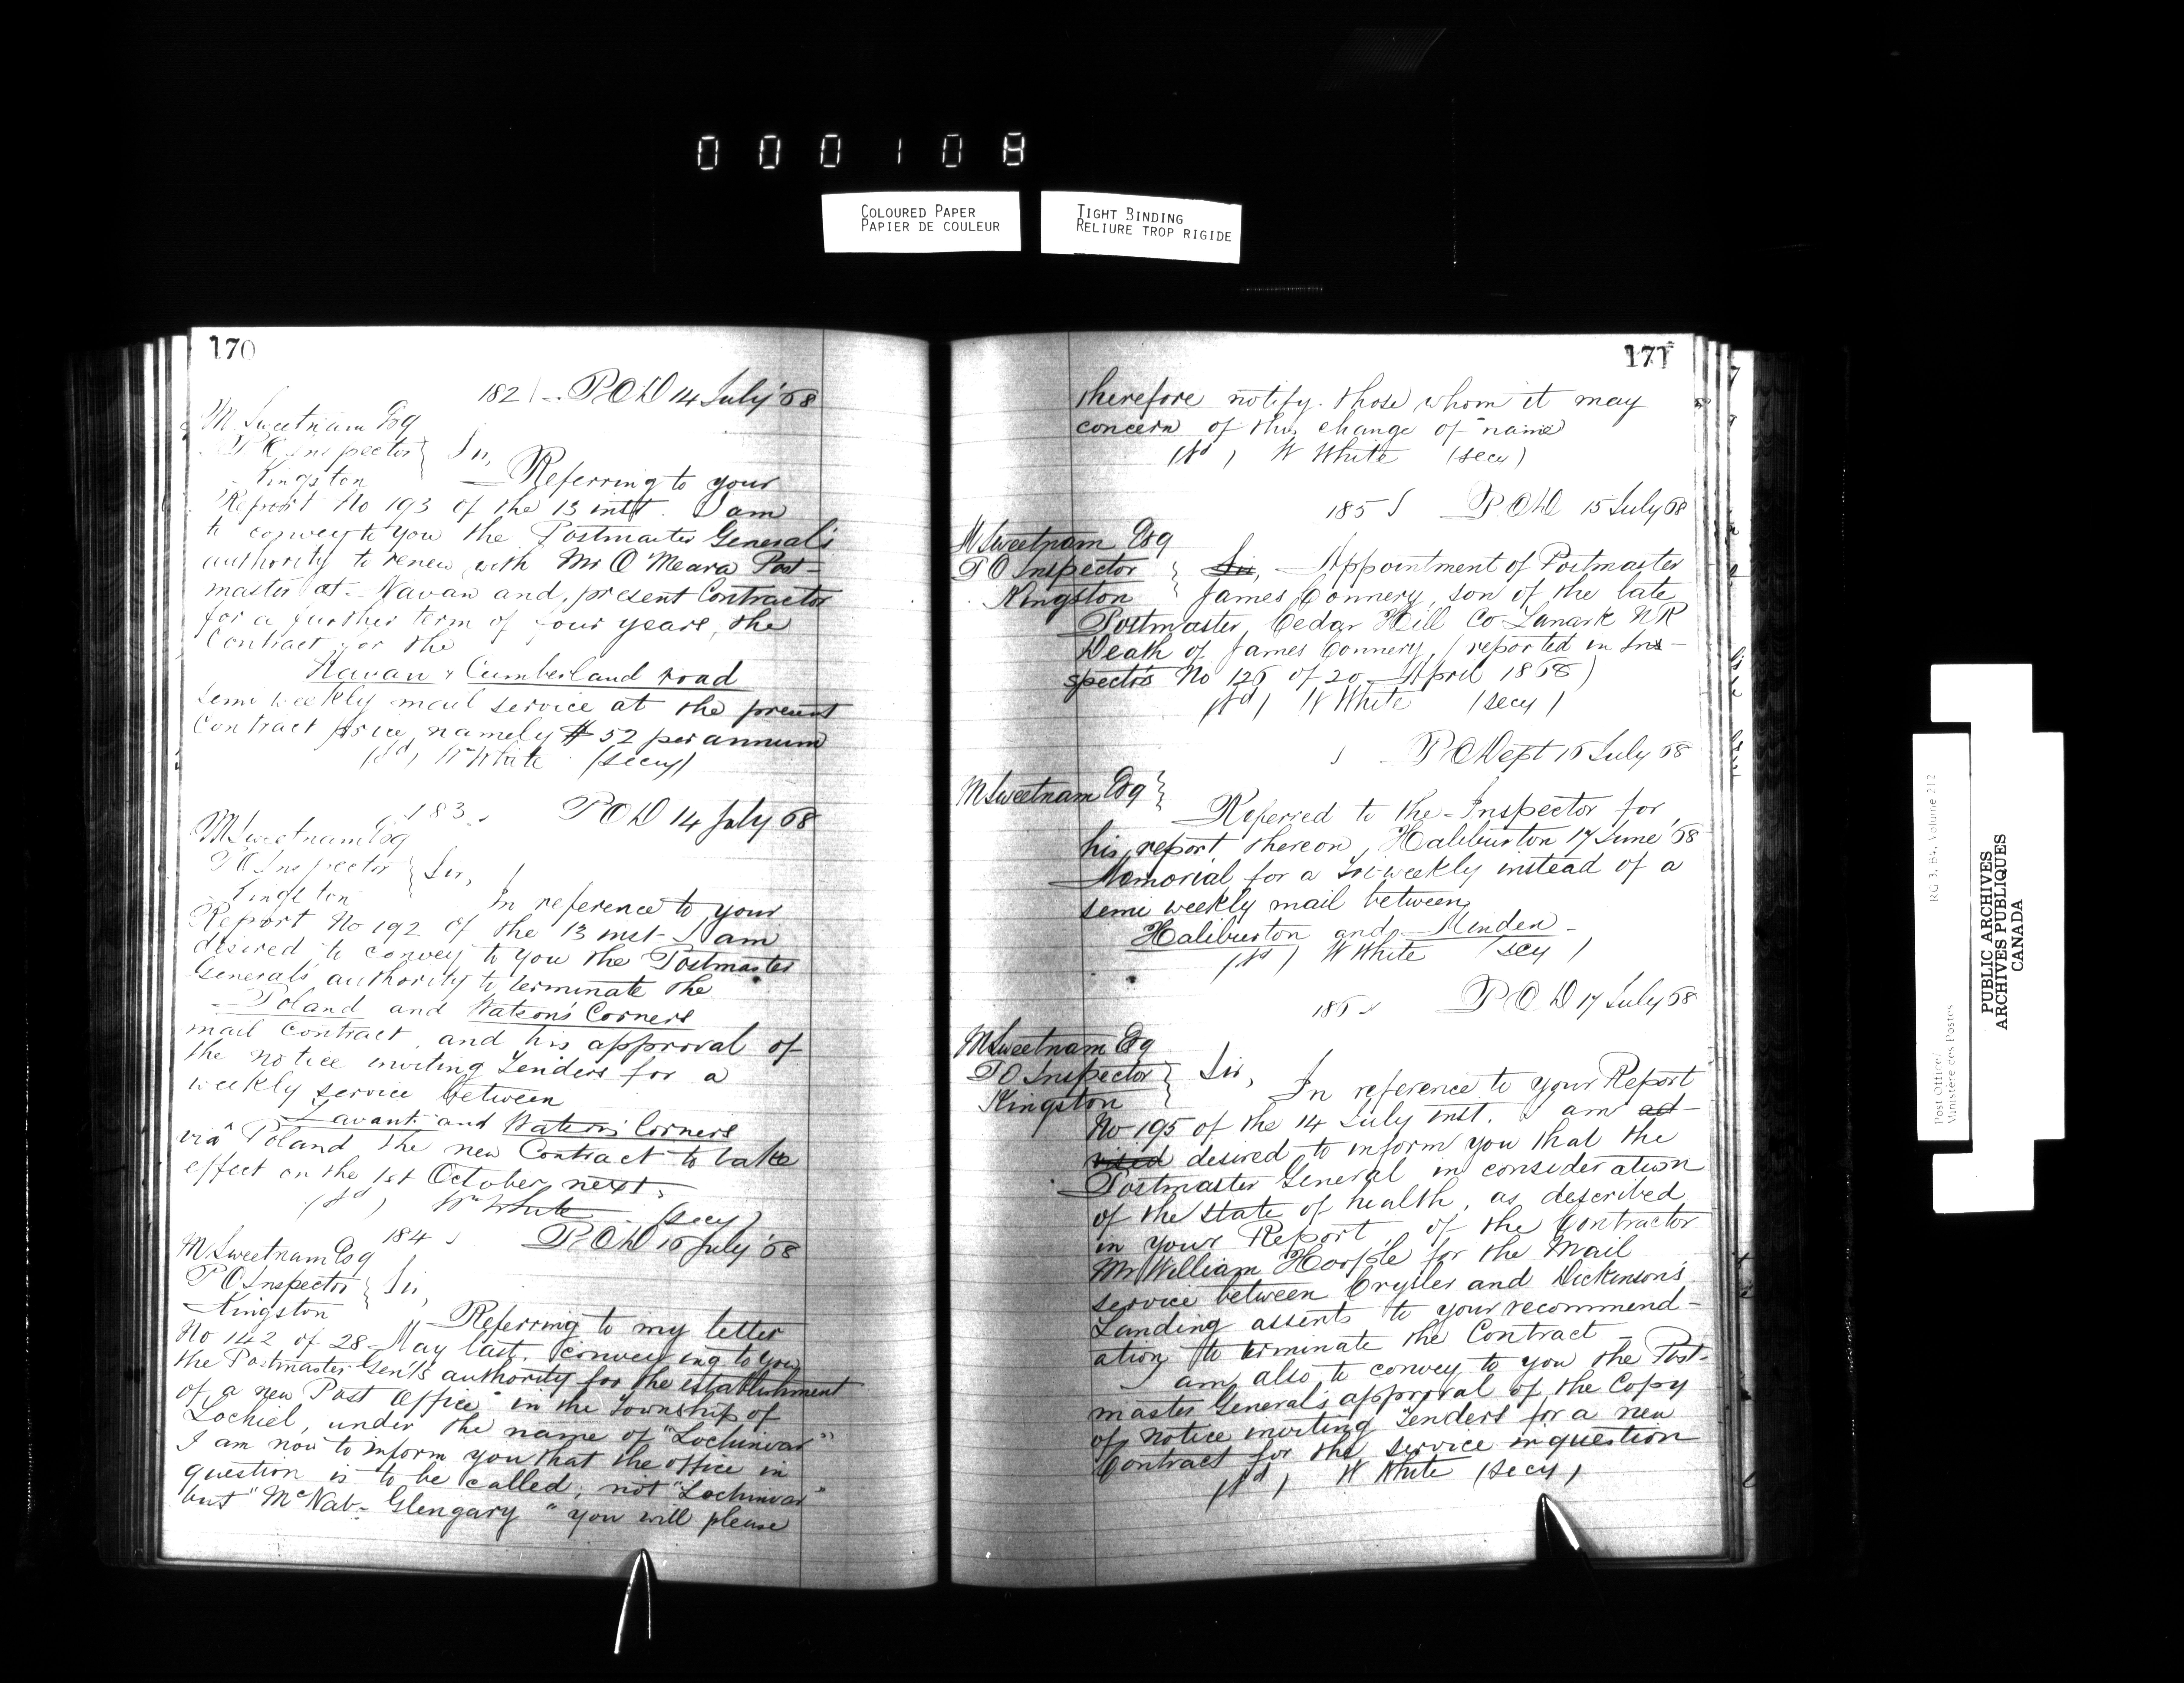 000108
COLOURED PAPER
PAPIER DE COULEUR
TIGHT BINDING
RELIURE TROP RIGIDE
170
182 P.O.D 14 July '68
M Sweetnam Esq
P O Inspector
Kingston
Sir,
Referring to your
Report No 193 of the 13 inst. I am
to convey to you the Postmaster General's
authority to renew with Mr O Meara Post-
master at Navan and present Contractor
for a further term of four years, the
Contract for the
Navan & Cumberland road
semi weekly mail service at the present
Contract price, namely $52 per annum
(sd) W White (secy)
183 P O D 14 July 68
M Sweetnam Esq
P O Inspector
Kingston
Sir,
In reference to your
Report No 192 of the 13 inst I am
desired to convey to you the Postmaster
Generals authority to terminate the
Poland and Watson's Corners
mail contract, and his approval of
the notice inviting Tenders for a
weekly service between
Lavant and Watson's Corners
via Poland the new Contract to take
effect on the 1st October next.
(sd) Wm White (secy)
184 P.O.D 16 July '68
M Sweetnam Esq
P O Inspector
Kingston
Sir,
Referring to my letter
No 142 of 28 May last, conveying to you
the Postmaster Gen'ls authority for the establishment
of a new Post Office in the Township of
Lochiel, under the name of "Lochinvar"
I am now to inform you that the office in
question is to be called, not "Lochinvar"
but "McNab- Glengary" you will please
171
therefore notify those whom it may
concern of this change of name
(sd) W White (secy)
185 P.O.D 15 July 68
M Sweetnam Esq
P O Inspector
Kingston
Sir, Appointment of Postmaster
James Connery, son of the late
Postmaster, Cedar Hill Co Lanark NR
Death of James Connery, (reported in Ins-
pectors No 126 of 20 April 1868)
(sd) W White (secy)
P O Dept 16 July 68
M Sweetnam Esq
Referred to the Inspector for
his report thereon, Haliburton 17 June '68
Memorial for a Tri-weekly instead of a
semi weekly mail between
Haliburton and Minden
(sd) W White (secy)
186 P O D 17 July 68
M Sweetnam Esq
P O Inspector
Kingston
Sir,
In reference to your Report
No 195 of the 14 July inst. I am ad-
vised desired to inform you that the
Postmaster General in consideration
of the state of health, as described
in your Report, of the Contractor
Mr William Hoople for the Mail
service between Crysler and Dickinson's
Landing assents to your recommend-
ation to terminate the Contract -
I am also to convey to you the Post-
master General's approval of the Copy
of Notice inviting Tenders for a new
Contract for the service in question
(sd) W White (secy)
Post Office
Ministère des Postes
RG 3, B4, Volume 212
PUBLIC ARCHIVES
ARCHIVES PUBLIQUES
CANADA